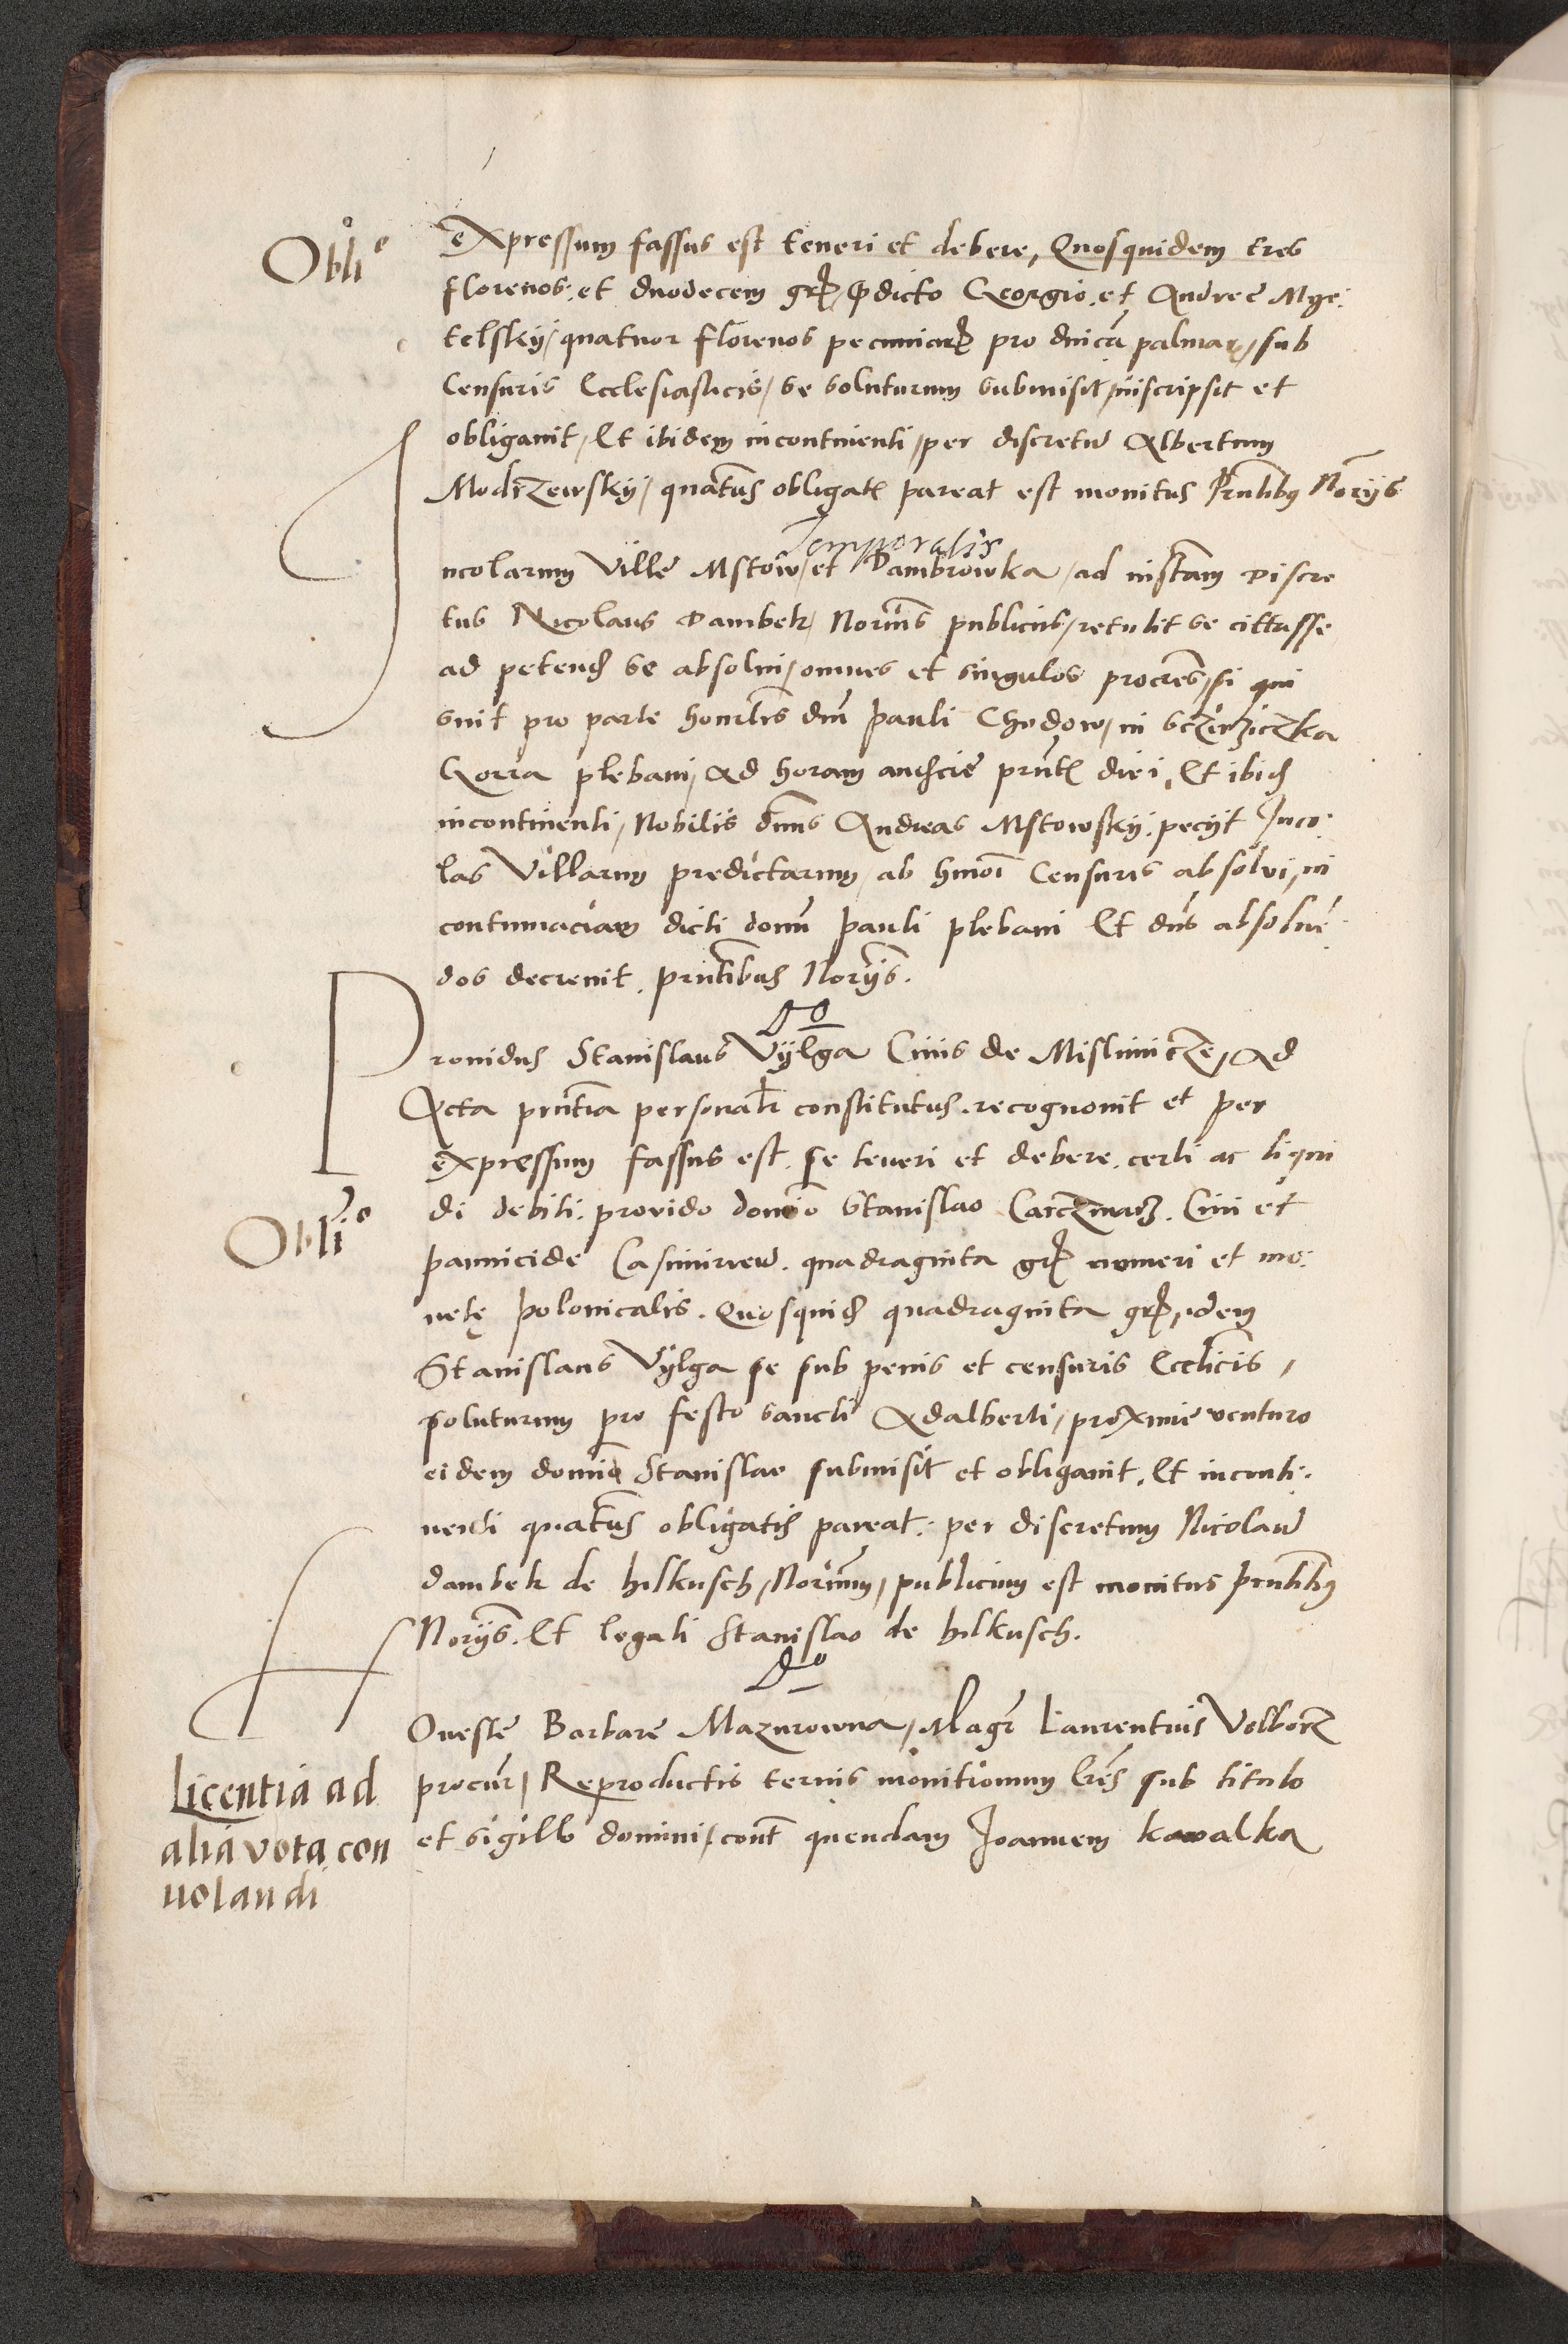 Obli°
expressum fassus est teneri et debere, Quosquidem tres
florenos. et duodecem grs, pdicto Georgio. et Andree Mye:
telsky, quatuor florenos pecuniars pro dnica palmar, sub
Censuris Ecclesiasticis, se soluturum submisit, inscripsit et
obligauit, Et ibidem incontinenti, per discretu Albertum
Modrzewsky, quatus obligat pareat est monitus Pntibus Norijs
Temporalis
Incolarum Ville Mstow, et Dambrowka, ad instam Discre
tus Nicolaus Dambek, Norius publicus, retulit se citasse
ad petend se absolui, omnes et singulos procres, si qui
sint pro parte honrlis dni Pauli Chodow, in
Gorra plebani, Ad horam audcie pnt diei, Et ibid
incontinenti, Nobilis dnus Andreas Mstowsky. pecyt Inco:
las Villarum predictarum, ab hmoi Censuris absolvi, in
contumaciam dicti domi Pauli plebani Et dns absoluē
dos decreuit. pntibus Norijs.
Do
Prouidus Stanislaus Vylga Ciuis de Mislimicze, Ad
Acta pntia personalr constitutus. recognouit et per
expressum fassus est. se teneri et debere. certi ac liqui
Obli°
di debiti. provido domio Stanislao Carczmarz. Ciui et
pannicide Casimirien. quadraginta grs numeri et mo:
netę polonicalis. Quosquid quadraginta grs, idem
Stanislaus Vylga se sub penis et censuris Ecclicis,
soluturum pro festo sancti Adalberti, proxime venturo
eidem domio Stanislao submisit et obligauit. Et inconti:
nenti quatus obligatis pareat: per discretum Nicolau
dambek de hilkusch, Norium, publicum est monitus pntibus
Norijs. Et legali Stanislao de hilkusch.
Do
Honeste Barbare Mazurowna, Magr Laurentius Volborz
procur, Reproductis ternis monitionum lris sub titulo
et sigillo domini, cont quendam Joannem kawalka
Licentia ad
alia vota con
uolandi